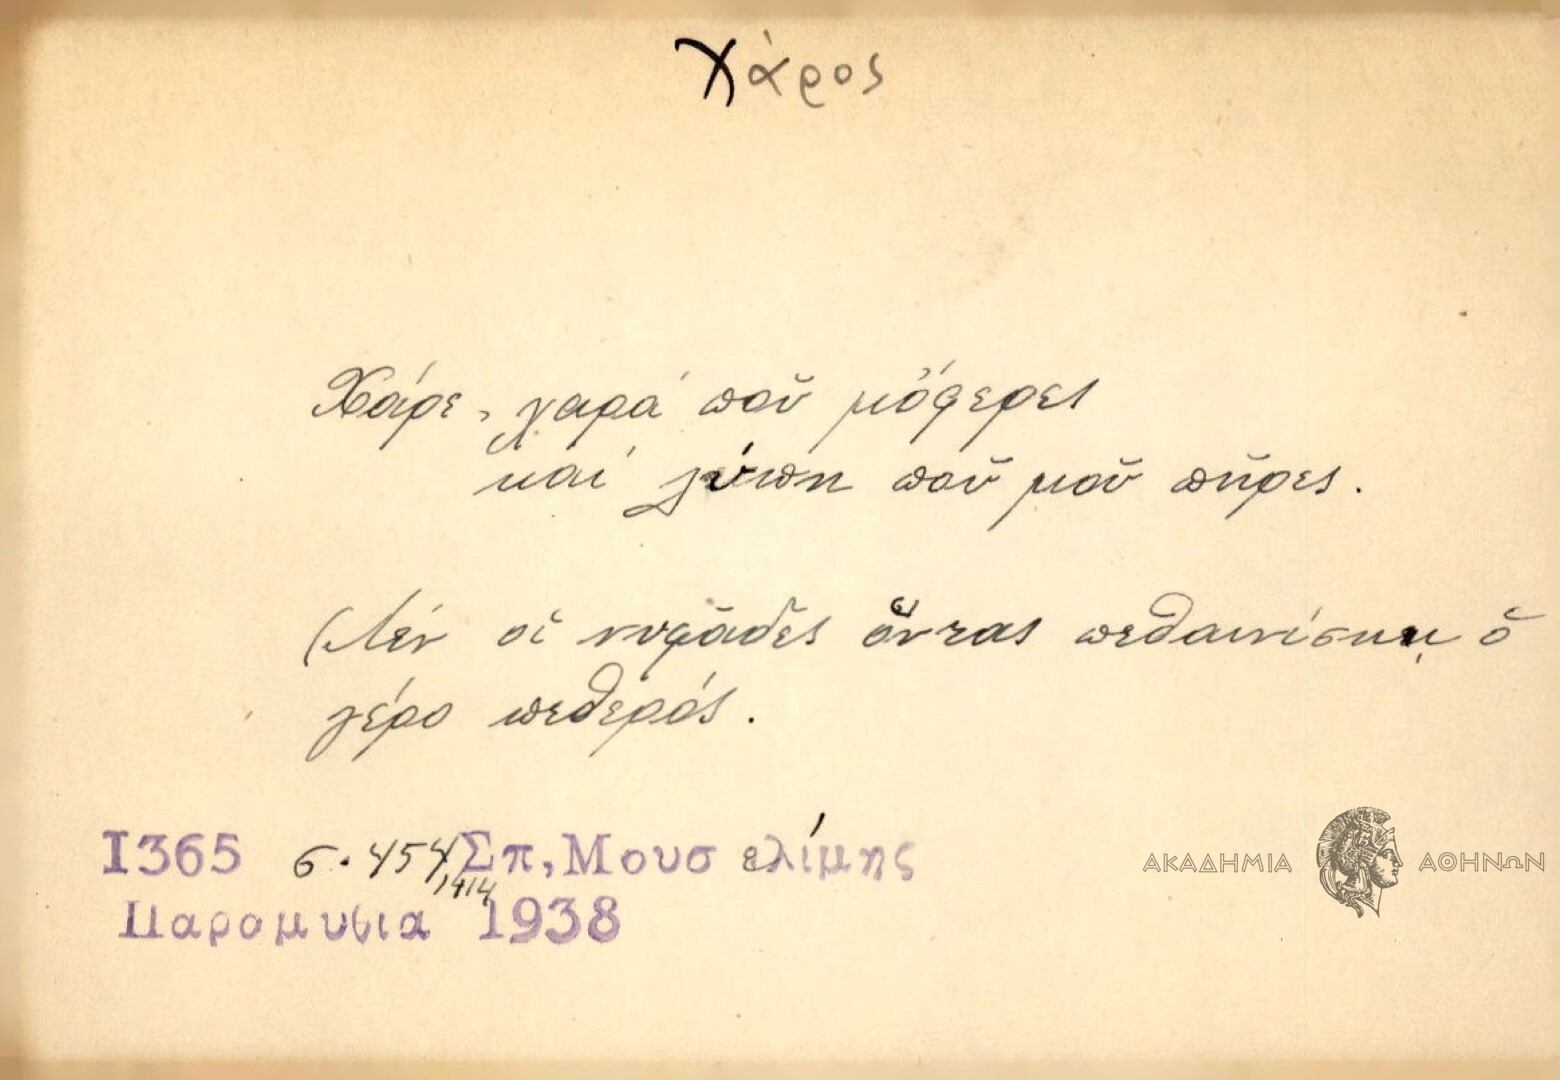 Χάρος
Χάρε, χαρά ποῦ μὄφερες
καί λύπη ποῦ μοῦ πῆρες.
(Λέν οἱ νυφᾶδες ὅντας πεθαινίσκῃ ὁ
γέρο πεθερός.
1365 σ. 454/1414 Σπ, Μουσελίμης
Παραμυθια 1938
ΑΚΑΔΗΜΙΑ ΑΘΗΝΩΝ